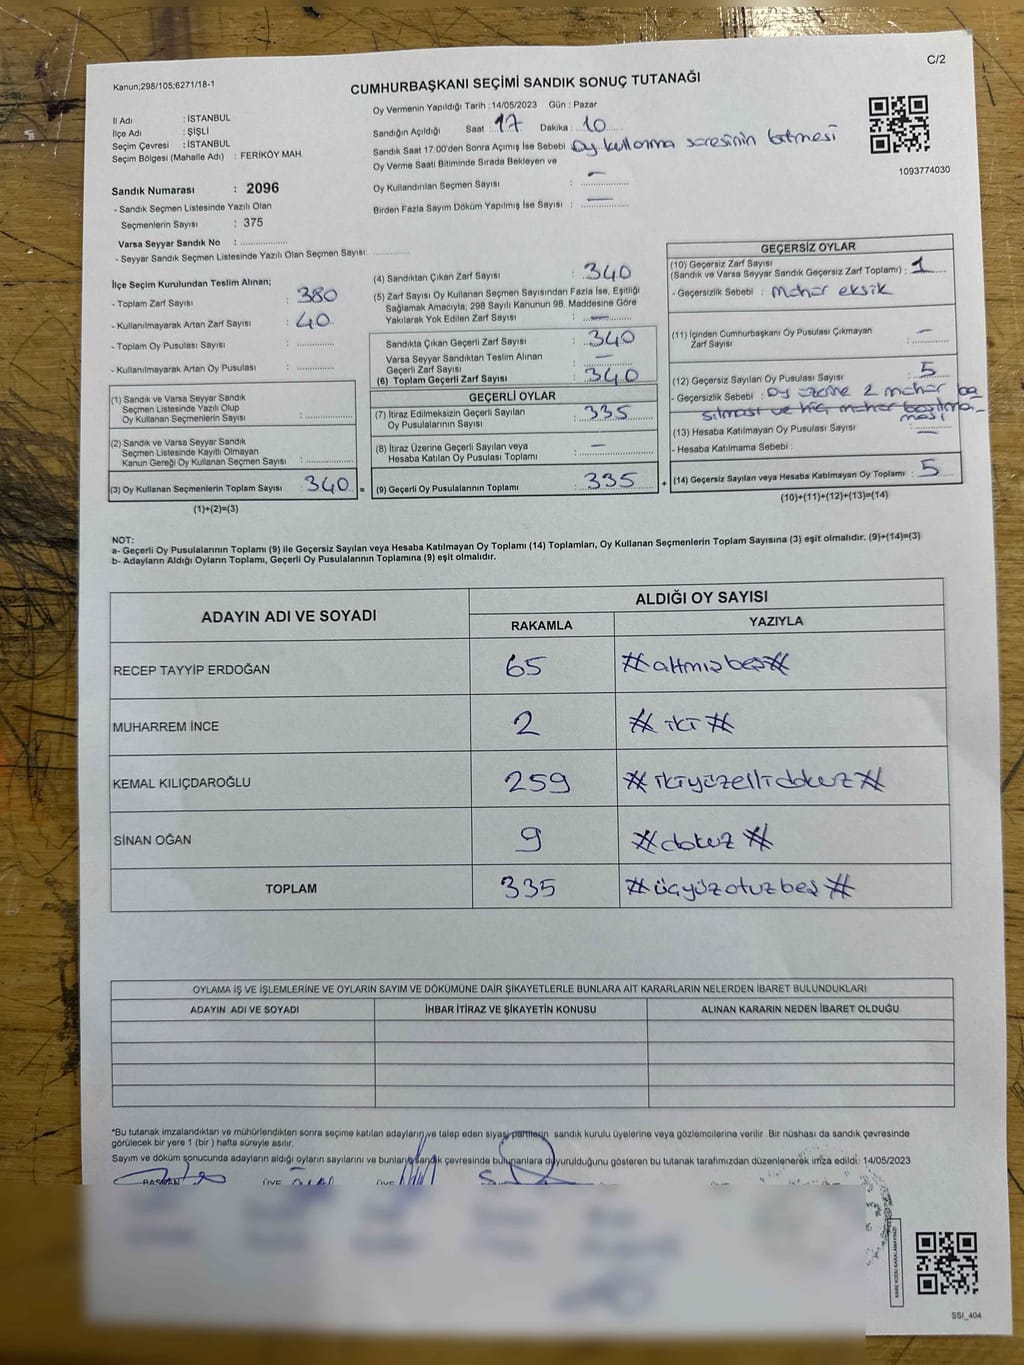 C/2
Kanun;298/105;6271/18-1
CUMHURBAŞKANI SEÇİMİ SANDIK SONUÇ TUTANAĞI
İl Adı : İSTANBUL
İlçe Adı : ŞİŞLİ
Seçim Çevresi : İSTANBUL
Seçim Bölgesi (Mahalle Adı) : FERİKÖY MAH.
Sandık Numarası : 2096
- Sandık Seçmen Listesinde Yazılı Olan
Seçmenlerin Sayısı : 375
Varsa Seyyar Sandık No : ..............
- Seyyar Sandık Seçmen Listesinde Yazılı Olan Seçmen Sayısı: ............
Oy Vermenin Yapıldığı Tarih : 14/05/2023 Gün : Pazar
Sandığın Açıldığı Saat : 17 Dakika : 10
Sandık Saat 17:00'den Sonra Açımış İse Sebebi Oy kullanma süresinin bitmesi
Oy Verme Saati Bitiminde Sırada Bekleyen ve
Oy Kullandırılan Seçmen Sayısı : —
Birden Fazla Sayım Döküm Yapılmış İse Sayısı : —
1093774030
İlçe Seçim Kurulundan Teslim Alınan;
- Toplam Zarf Sayısı : 380
- Kullanılmayarak Artan Zarf Sayısı : 40
- Toplam Oy Pusulası Sayısı : ............
- Kullanılmayarak Artan Oy Pusulası : ............
(1) Sandık ve Varsa Seyyar Sandık
Seçmen Listesinde Yazılı Olup
Oy Kullanan Seçmenlerin Sayısı : ............
(2) Sandık ve Varsa Seyyar Sandık
Seçmen Listesinde Kayıtlı Olmayan
Kanun Gereği Oy Kullanan Seçmen Sayısı : ............
(3) Oy Kullanan Seçmenlerin Toplam Sayısı : 340 =
(1)+(2)=(3)
(4) Sandıktan Çıkan Zarf Sayısı : 340
(5) Zarf Sayısı Oy Kullanan Seçmen Sayısından Fazla İse, Eşitliği
Sağlamak Amacıyla; 298 Sayılı Kanunun 98. Maddesine Göre
Yakılarak Yok Edilen Zarf Sayısı : —
Sandıkta Çıkan Geçerli Zarf Sayısı : 340
Varsa Seyyar Sandıktan Teslim Alınan
Geçerli Zarf Sayısı : —
(6) Toplam Geçerli Zarf Sayısı : 340
GEÇERLİ OYLAR
(7) İtiraz Edilmeksizin Geçerli Sayılan
Oy Pusulalarının Sayısı : 335
(8) İtiraz Üzerine Geçerli Sayılan veya
Hesaba Katılan Oy Pusulası Toplamı : —
(9) Geçerli Oy Pusulalarının Toplamı : 335 +
GEÇERSİZ OYLAR
(10) Geçersiz Zarf Sayısı
(Sandık ve Varsa Seyyar Sandık Geçersiz Zarf Toplamı) : 1
- Geçersizlik Sebebi : Mühür eksik
(11) İçinden Cumhurbaşkanı Oy Pusulası Çıkmayan
Zarf Sayısı : —
(12) Geçersiz Sayılan Oy Pusulası Sayısı : 5
- Geçersizlik Sebebi : Oy üzerine 2 mühür ba
sılması ve hiç mühür basılma-
ması
(13) Hesaba Katılmayan Oy Pusulası Sayısı : —
- Hesaba Katılmama Sebebi :
(14) Geçersiz Sayılan veya Hesaba Katılmayan Oy Toplamı : 5
(10)+(11)+(12)+(13)=(14)
NOT:
a- Geçerli Oy Pusulalarının Toplamı (9) ile Geçersiz Sayılan veya Hesaba Katılmayan Oy Toplamı (14) Toplamları, Oy Kullanan Seçmenlerin Toplam Sayısına (3) eşit olmalıdır. (9)+(14)=(3)
b- Adayların Aldığı Oyların Toplamı, Geçerli Oy Pusulalarının Toplamına (9) eşit olmalıdır.
ADAYIN ADI VE SOYADI ALDIĞI OY SAYISI
RAKAMLA YAZIYLA
RECEP TAYYİP ERDOĞAN 65 #altmışbeş#
MUHARREM İNCE 2 # iki #
KEMAL KILIÇDAROĞLU 259 # ikiyüzellidokuz #
SİNAN OĞAN 9 #dokuz #
TOPLAM 335 #üçyüzotuzbeş #
OYLAMA İŞ VE İŞLEMLERİNE VE OYLARIN SAYIM VE DÖKÜMÜNE DAİR ŞİKAYETLERLE BUNLARA AİT KARARLARIN NELERDEN İBARET BULUNDUKLARI
ADAYIN ADI VE SOYADI İHBAR İTİRAZ VE ŞİKAYETİN KONUSU ALINAN KARARIN NEDEN İBARET OLDUĞU
*Bu tutanak imzalandıktan ve mühürlendikten sonra seçime katılan adayların ve talep eden siyasi partilerin sandık kurulu üyelerine veya gözlemcilerine verilir. Bir nüshası da sandık çevresinde
görülecek bir yere 1 (bir) hafta süreyle asılır.
Sayım ve döküm sonucunda adayların aldığı oyların sayılarını ve bunların sandık çevresinde bulunanlara duyurulduğunu gösteren bu tutanak tarafımızdan düzenlenerek imza edildi. 14/05/2023
BAŞKAN ÜYE ÜYE
KARE KODU KARALAMAYINIZ!
SSI_404